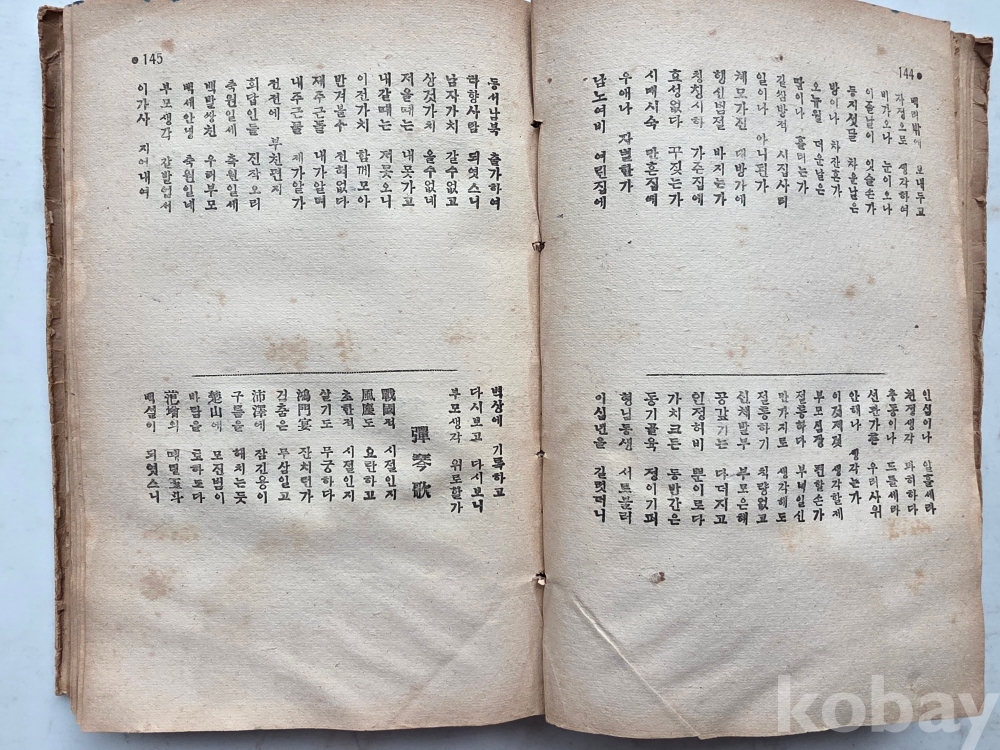 144
백리밖에 보내두고
자정으로 생각하여
비가오나 눈이오나
이즐날이 잇슬손가
동지섯달 차운날은
밤이나 차잔혼가
오뉴월 더운날은
땀이나 흘터는가
길삼방적 시집사리
일이나 아니된가
체모가진 대방가에
행신범절 바지는가
칭칭시하 가준집에
효성없다 꾸짖는가
시매시숙 만흔집에
우애나 자별한가
남노여비 여린집에
인심이나 일흘세라
친정생각 과히하다
충동이나 드를세라
선관가튼 우리사위
안해나 생각는가
이젖제젖 생각할제
부모심장 편할손가
절통하다 부녀일신
만가지로 생각해도
절통하기 칙량없고
신체발부 부모은해
공갑기는 다더지고
인정허비 뿐이로다
가치크든 동발간은
동기골육 정이기퍼
형님동생 서트불러
이십년을 길럿더니
145
동서남북 출가하여
타향사람 되엿스니
남자가치 갈수없고
상것가치 올수없네
저올때는 내못가고
내갈때는 저못오니
이전가치 함께모아
반겨볼수 전혀없다
제주근들 내가알며
내주근들 제가알가
전전에 부친편지
회답인들 진작오리
축원일세 축원일세
백발쌍친 우리부모
백세안녕 축원일네
부모생각 갈발업서
이가사 지어내여
벽상에 기록하고
다시보고 다시보니
부모생각 위로할가
彈琴歌
戰國적 시절인지
風塵도 요란하고
초한적 시절인지
살기도 무궁하다
鴻門宴 잔치런가
검춤은 무삼일고
沛澤에 잠긴용이
구름을 해치는듯
楚山에 모진범이
바람을 료하도다
范增의 깨떨玉斗
백설이 되엿스니
kobay